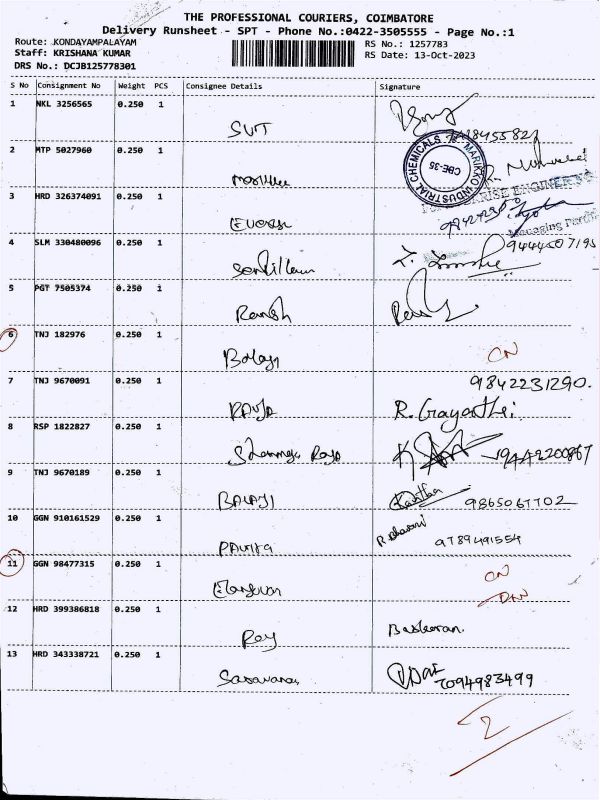 THE PROFESSIONAL COURIERS, COIMBATORE
Delivery Runsheet - SPT - Phone No.:0422-3505555 - Page No.:1
Route: KONDAYAMPALAYAM
Staff: KRISHANA KUMAR
DRS No.: DCJB125778301
RS No.: 1257783
RS Date: 13-Oct-2023
S No Consignment No Weight PCS Consignee Details Signature
1 NKL 3256565 0.250 1
2 MTP 5027960 0.250 1
MARIKKO INDUSTRIAL CHEMICALS
CBE-35
3 HRD 326374091 0.250 1
4 SLM 330480096 0.250 1
9444507195
5 PGT 7505374 0.250 1
Ramesh
6 TNJ 182976 0.250 1
Balaji CN
7 TNJ 9670091 0.250 1
9842231290.
R. Gayathri
8 RSP 1822827 0.250 1
9442200867
9 TNJ 9670189 0.250 1
BALAJI Kavitha 9865067702
10 GGN 910161529 0.250 1
PAVITRA 9789491554
11 GGN 98477315 0.250 1
Elangovan CN
12 HRD 399386818 0.250 1
Roy Baskaran.
13 HRD 343338721 0.250 1
Saravanan 7094983499
2